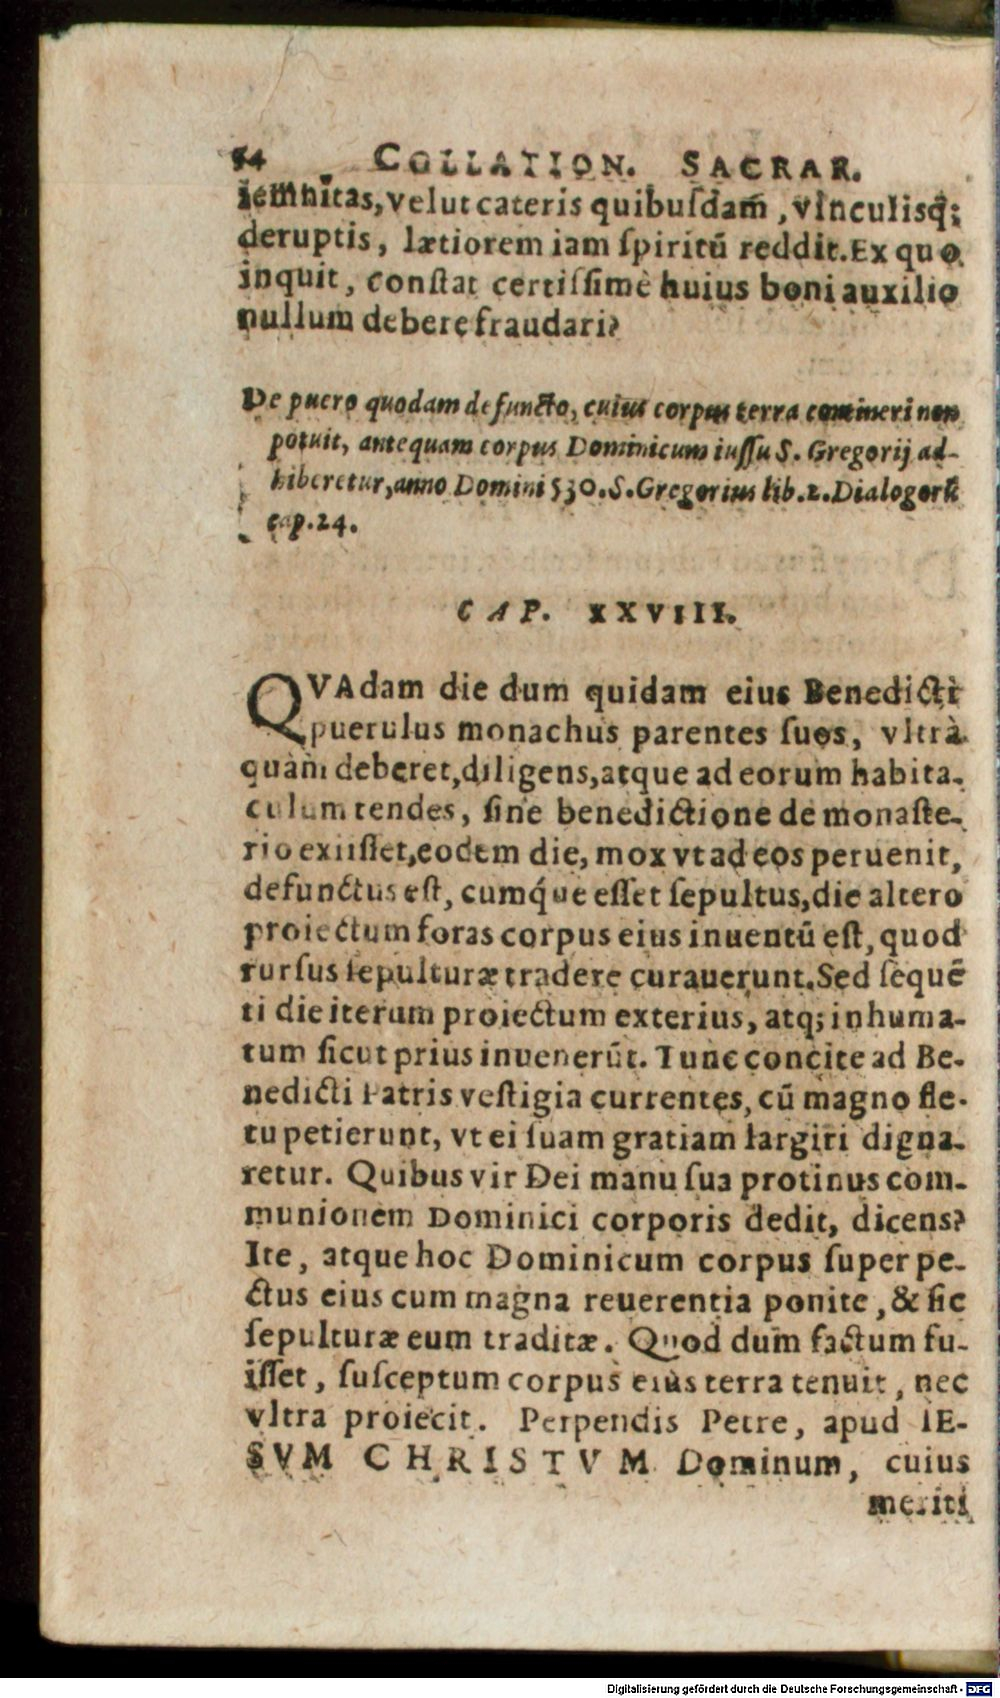 54 COLLATION. SACRAR.
lemnitas, velut cateris quibuſdam̃, vinculisq́;
deruptis, lætiorem iam ſpiritũ reddit. Ex quo
inquit, conſtat certiſſimè huius boni auxilio
nullum debere fraudari?
De puero quodam defuncto, cuius corpus terra contineri non
potuit, antequam corpus Dominicum iuſſu S. Gregorij ad-
hiberetur, anno Domini 530. S. Gregorius lib. 2. Dialogorũ
cap. 24.
CAP. XXVIII.
QVAdam die dum quidam eius Benedicti
puerulus monachus parentes ſuos, vltrà
quàm deberet, diligens, atque ad eorum habita-
culum tendẽs, ſine benedictione de monaſte-
rio exiiſſet, eodem die, mox vt ad eos peruenit,
defunctus eſt, cumq́ue eſſet ſepultus, die altero
proiectum foras corpus eius inuentũ eſt, quod
rurſus ſepulturæ tradere curauerunt. Sed ſequẽ
ti die iterum proiectum exterius, atq; inhuma-
tum ſicut prius inuenerũt. Tunc concite ad Be-
nedicti Patris veſtigia currentes, cũ magno fle-
tu petierunt, vt ei ſuam gratiam largiri digna-
retur. Quibus vir Dei manu ſua protinus com-
munionem Dominici corporis dedit, dicens?
Ite, atque hoc Dominicum corpus ſuper pe-
ctus eius cum magna reuerentia ponite, & ſic
ſepulturæ eum traditæ. Quod dum factum fu-
iſſet, ſuſceptum corpus eius terra tenuit, nec
vltra proiecit. Perpendis Petre, apud IE-
SVM CHRISTVM Dominum, cuius
meriti
Digitalisierung gefördert durch die Deutsche Forschungsgemeinschaft - DFG